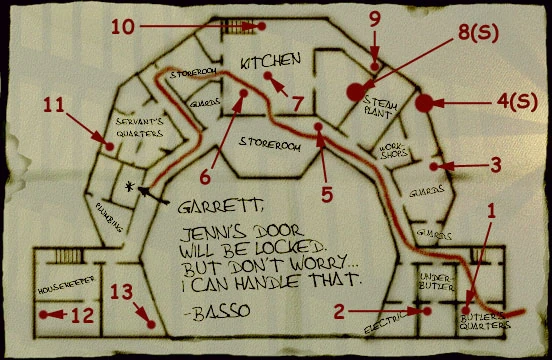 10
9
8(S)
KITCHEN
STOREROOM
7
4(S)
GUARDS
STEAM
PLANT
11
SERVANT'S
QUARTERS
STOREROOM
WORK-
SHOPS
3
6
5
GUARDS
*
PLUMBING
GARRETT,
JENNI'S DOOR
WILL BE LOCKED.
BUT DON'T WORRY...
I CAN HANDLE THAT.
-BASSO
GUARDS
1
HOUSEKEEPER
13
UNDER-
BUTLER
12
2
ELECTRIC
BUTLER'S
QUARTERS